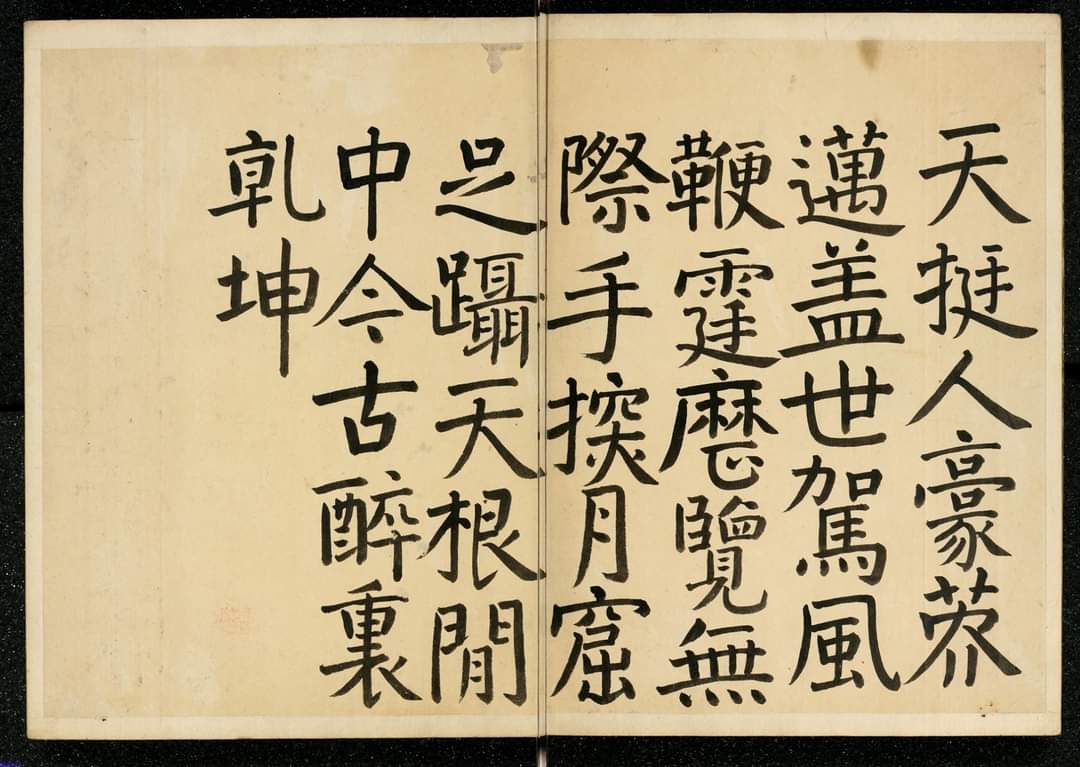 天挺人豪英
邁盖世駕風
鞭霆歷覽無
際手探月窟
足躡天根閒
中今古醉裏
乾坤